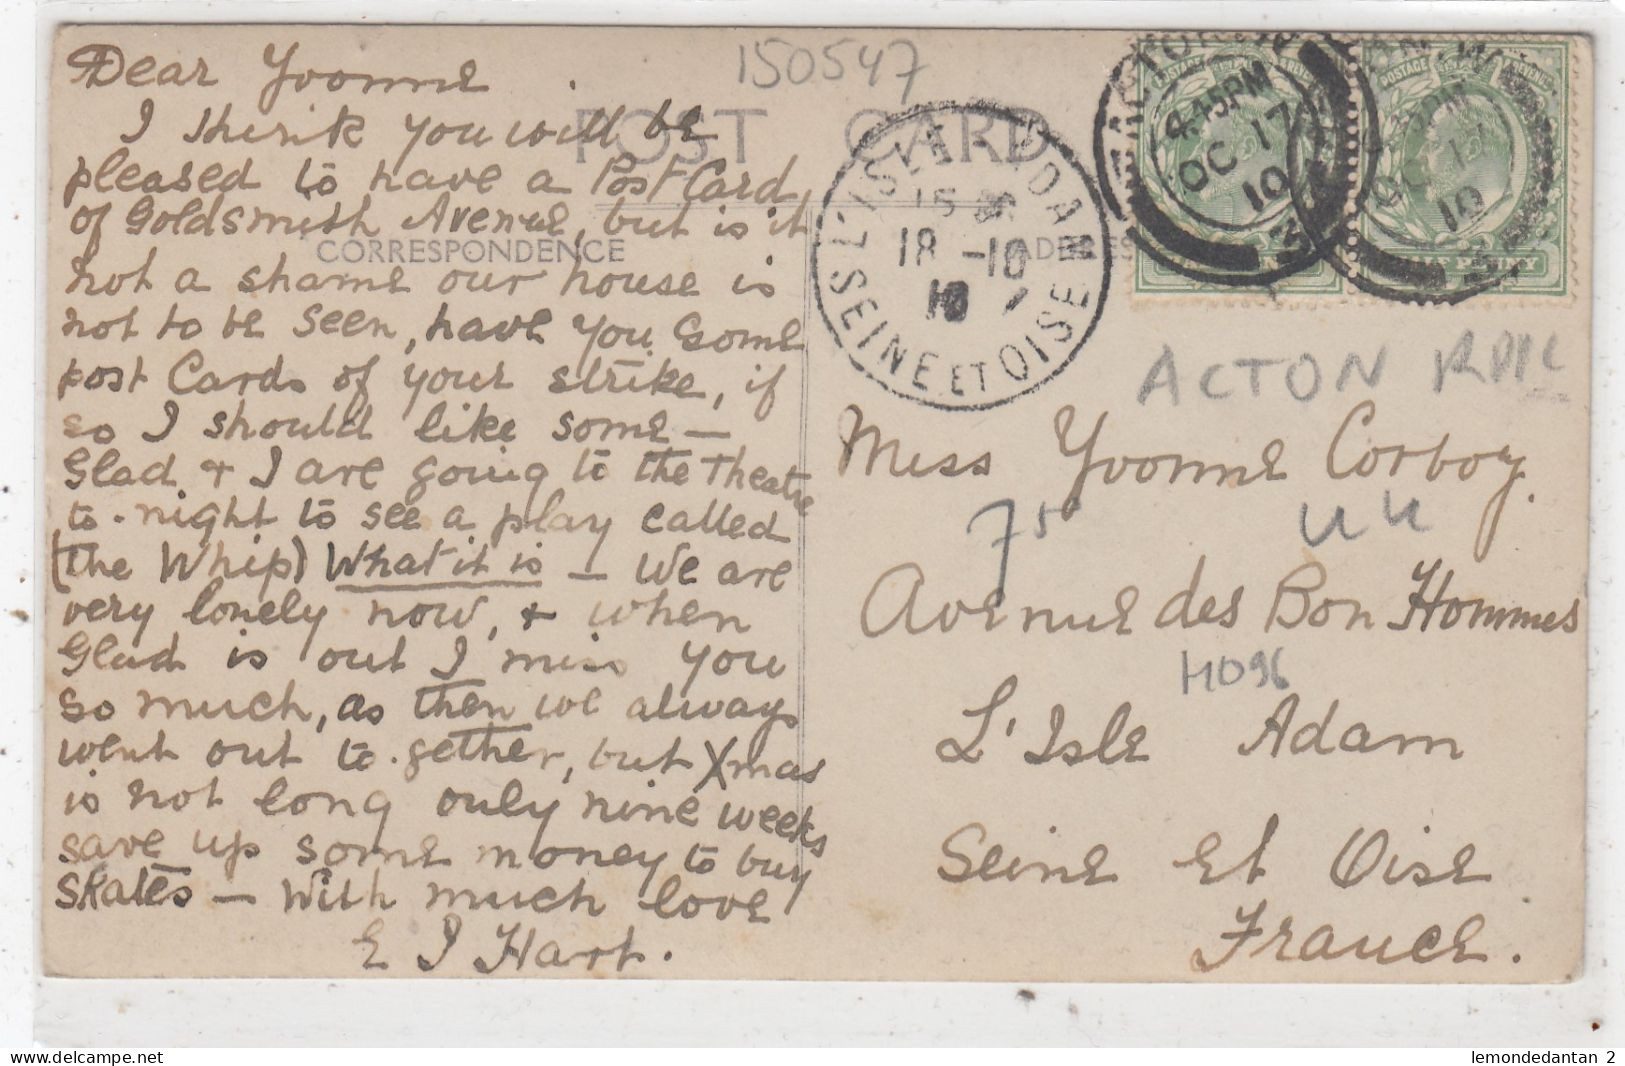 Dear Yvonne
I think you will be
pleased to have a Post Card
of Goldsmith Avenue, but is it
not a shame our house is
not to be seen, have you some
post Cards of your strike, if
so I should like some —
Glad + I are going to the Theatre
to-night to see a play called
(The Whip) What it is — We are
very lonely now, + when
Glad is out I miss you
so much, as then we always
went out to-gether, but Xmas
is not long only nine weeks
save up some money to buy
skates — With much love
E J Hart.
150547
POST CARD
CORRESPONDENCE
ADDRESS
L'ISLE-ADAM
18 -10
10
SEINE ET OISE
ACTON
4.45PM
OC 17
10
POSTAGE REVENUE
HALF PENNY
ACTON
Miss Yvonne Corboy.
75
UK
Avenue des Bon Hommes
H096
L'Isle Adam
Seine et Oise
France.
lemondedantan 2